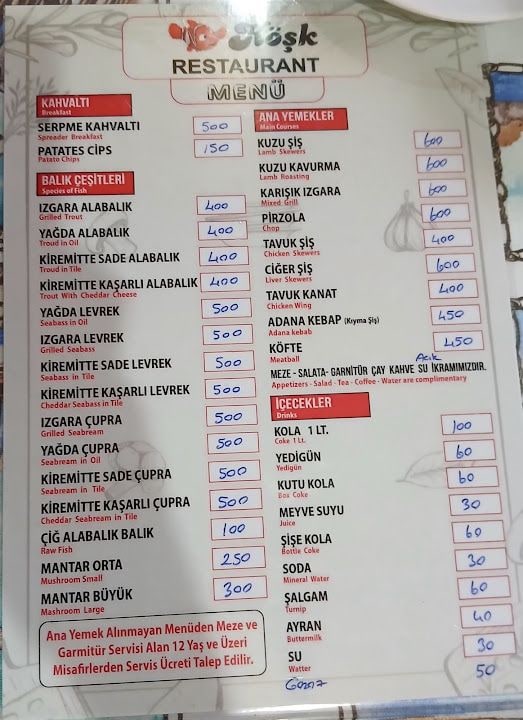 Köşk
RESTAURANT
MENÜ
KAHVALTI
Breakfast
SERPME KAHVALTI 500
Spreader Breakfast
PATATES CİPS 150
Patato Chips
BALIK ÇEŞİTLERİ
Species of Fish
IZGARA ALABALIK 400
Grilled Trout
YAĞDA ALABALIK 400
Troud in Oil
KİREMİTTE SADE ALABALIK 400
Troud in Tile
KİREMİTTE KAŞARLI ALABALIK 400
Trout With Cheddar Cheese
YAĞDA LEVREK 500
Seabass in Oil
IZGARA LEVREK 500
Grilled Seabass
KİREMİTTE SADE LEVREK 500
Seabass in Tile
KİREMİTTE KAŞARLI LEVREK 500
Cheddar Seabass in Tile
IZGARA ÇUPRA 500
Grilled Seabream
YAĞDA ÇUPRA 500
Seabream in Oil
KİREMİTTE SADE ÇUPRA 500
Seabream in Tile
KİREMİTTE KAŞARLI ÇUPRA 500
Cheddar Seabream in Tile
ÇİĞ ALABALIK BALIK 100
Raw Fish
MANTAR ORTA 250
Mushroom Small
MANTAR BÜYÜK 300
Mashroom Large
Ana Yemek Alınmayan Menüden Meze ve
Garnitür Servisi Alan 12 Yaş ve Üzeri
Misafirlerden Servis Ücreti Talep Edilir.
ANA YEMEKLER
Main Courses
KUZU ŞİŞ 600
Lamb Skewers
KUZU KAVURMA 600
Lamb Roasting
KARIŞIK IZGARA 600
Mixed Grill
PİRZOLA 600
Chop
TAVUK ŞİŞ 400
Chicken Skewers
CİĞER ŞİŞ 600
Liver Skewers
TAVUK KANAT 400
Chicken Wing
ADANA KEBAP (Kıyma Şiş) 450
Adana kebab
KÖFTE 450
Meatball
Açık
MEZE - SALATA- GARNİTÜR ÇAY KAHVE SU İKRAMIMIZDIR.
Appetizers - Salad - Tea - Coffee - Water are complimentary
İÇECEKLER
Drinks
KOLA 1 LT. 100
Coke 1 Lt.
YEDİGÜN 60
Yedigün
KUTU KOLA 60
Box Coke
MEYVE SUYU 30
Juice
ŞİŞE KOLA 60
Bottle Coke
SODA 30
Mineral Water
ŞALGAM 60
Turnip
AYRAN 40
Buttermilk
SU 30
Watter
Gazoz 50